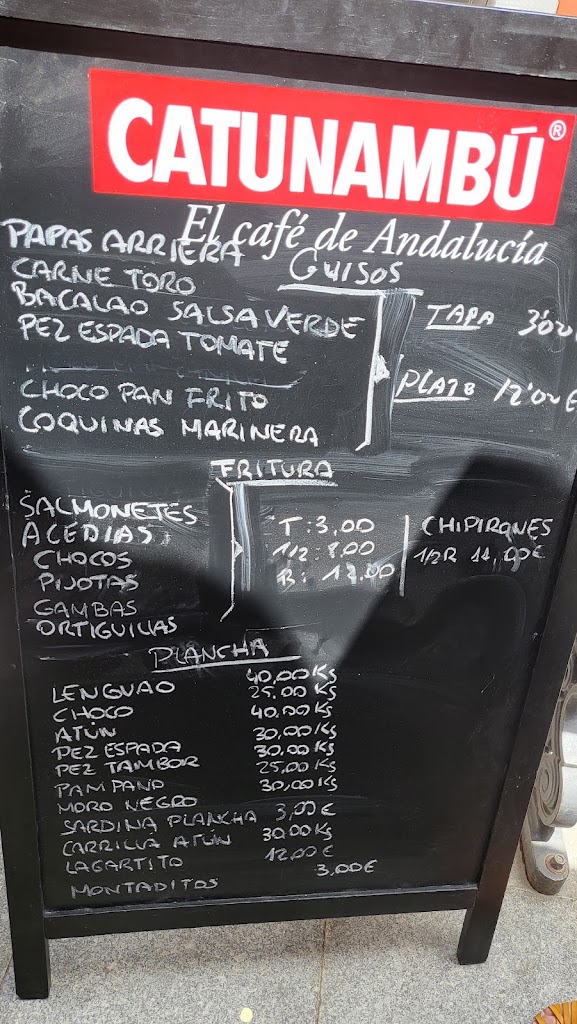 CATUNAMBÚ®
El café de Andalucía
GUISOS
PAPAS ARRIERA
CARNE TORO
BACALAO SALSA VERDE
PEZ ESPADA TOMATE
CHOCO PAN FRITO
COQUINAS MARINERA
TAPA 3'00
PLATO 12'00€
FRITURA
SALMONETES
ACEDIAS
CHOCOS
PIJOTAS
GAMBAS
ORTIGUILLAS
T:3,00
1/2:8.00
CHIPIRONES
1/2R 11,00€
PLANCHA
LENGUAO 40,00 Kg
CHOCO 25,00 Kg
ATÚN 40,00 Kg
PEZ ESPADA 30,00 Kg
PEZ TAMBOR 30,00 Kg
PAMPANO 25,00 Kg
MORO NEGRO 30,00 Kg
SARDINA PLANCHA 3,00 €
CARRILLA ATÚN 30,00 Kg
LAGARTITO 12,00 €
MONTADITOS 3,00 €